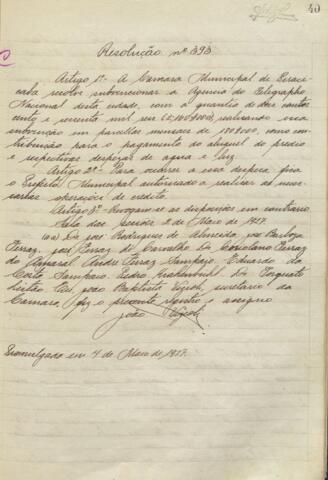 40
Resolução nº 393
Artigo 1º - A Camara Municipal de Piraci-
caba resolve subvencionar a Agencia do Telegrapho
Nacional desta cidade, com a quantia de dois contos
cento e sessenta mil reis realisando essa
subvenção em parcellas mensaes de 180$000, como con-
tribuição para o pagamento do aluguel do predio
e respectivas despezas de agua e luz.
Artigo 2º - Para occorrer a essa despeza fica
o Prefeito Municipal autorisado a realisar as neces-
sarias operações de credito.
Artigo 3º - Revogam-se as disposições em contrario
Sala das sessões, 2 de Maio de 1927.
(aa) Dr. José Rodrigues de Almeida, José Barboza
Ferraz, José Ferraz de Carvalho, Dr. Coriolano Ferraz
do Amaral, André Ferraz Sampaio, Eduardo da
Costa Sampaio, Pedro Krahenbuhl, Dr. Torquato
Leitão. Eu, João Baptista Vizioli, secretario da
Camara, fiz o presente registro e assigno
João Vizioli
Promulgada em 4 de Maio de 1927.